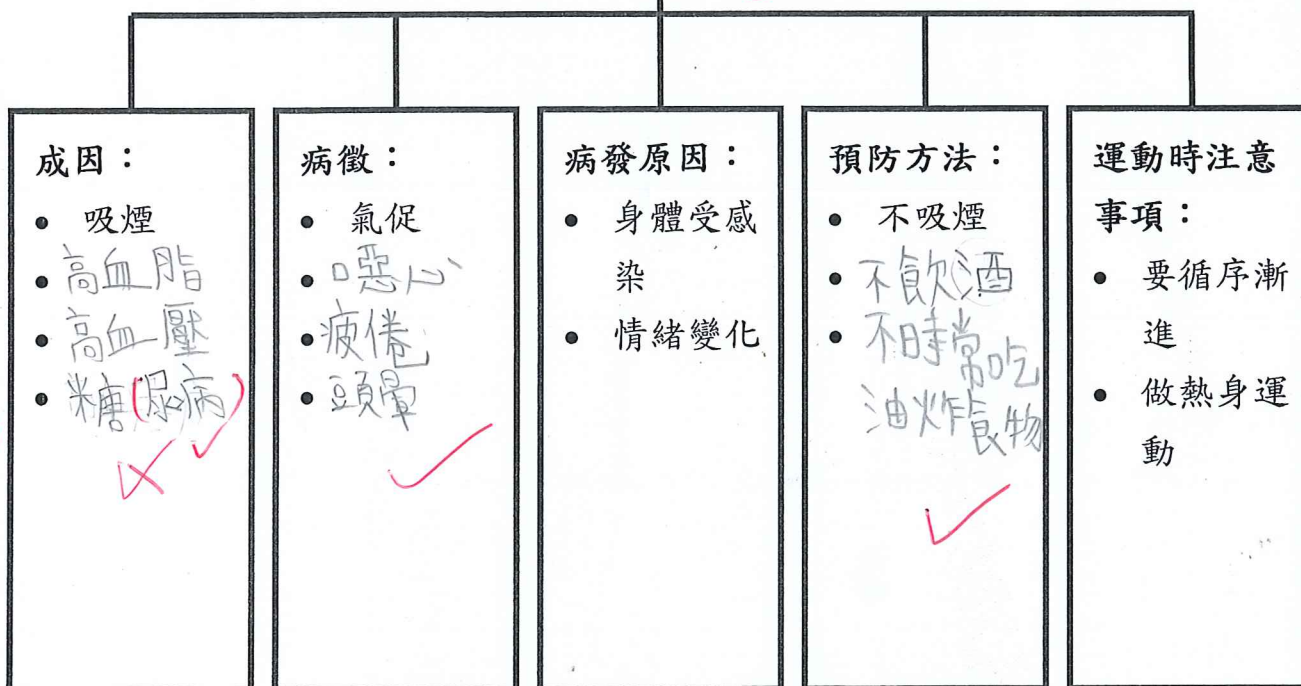 成因：
• 吸煙
• 高血脂
• 高血壓
• 糖(尿病)
病徵：
• 氣促
• 噁心
• 疲倦
• 頭暈
病發原因：
• 身體受感
染
• 情緒變化
預防方法：
• 不吸煙
• 不飲酒
• 不時常吃
油炸食物
運動時注意
事項：
• 要循序漸
進
• 做熱身運
動